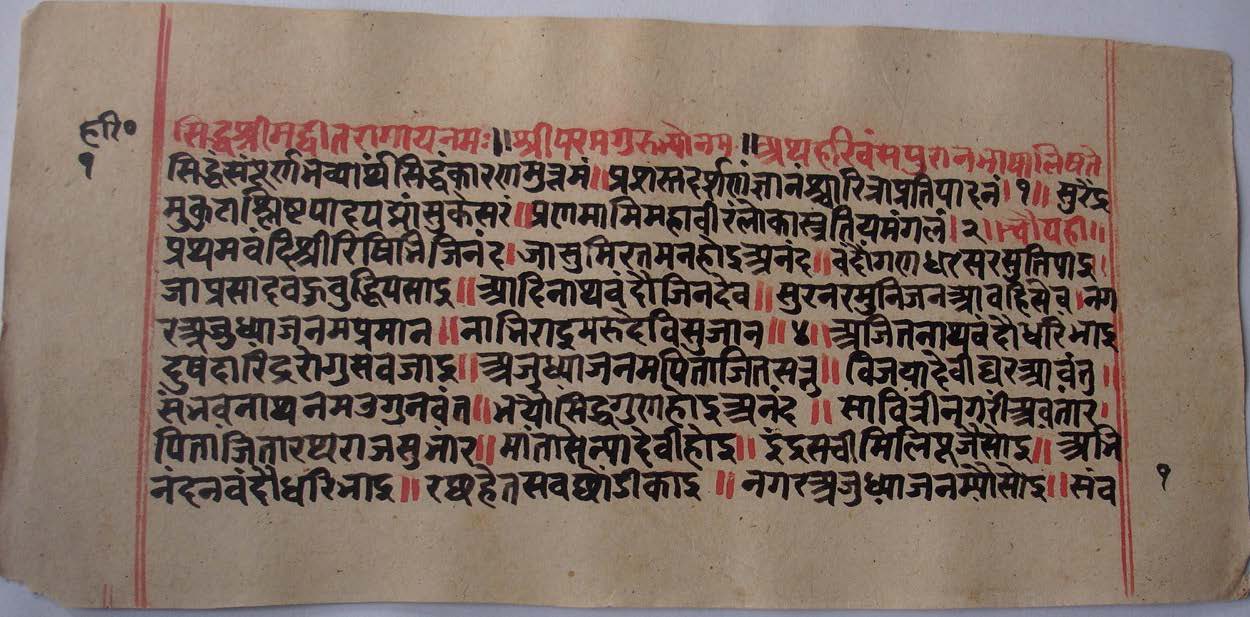 हरि॰
१
सिद्धश्रीमद्वीतरागायनमः॥श्रीपरमगुरुभ्योनम॥अथहरिवंसपुरानभाषालिषते
सिद्धसंपूर्णभव्यार्थंसिद्धेकारणमुत्तमं॥प्रशस्तदर्शणंज्ञानंश्चारित्राप्रतिपादनं।१॥सुरेंद्र
मुकुटाश्लिष्टपादपद्मांसुकेसरं॥प्रणमामिमहावीरंलोकास्त्रतियमंगलं।२॥चौपही॥
प्रथमवंदिश्रीरिषिभिजिनंद।जासुमिरतमनहोइअनंद॥वंदौंगणधरसरसुतिपाइ।
जाप्रसादवङ्गबुद्धिपसाइ॥आदिनाथवंदौजिनदेव॥सुरनरमुनिजनआवहिसेव।नग
रअजुध्याजनमप्रमान॥नाभिराइमरुदेविसुजान॥४॥अजितनाथवंदौधरिभाइ
दुषदारिद्ररोगुसवजाइ॥अजुध्याजनमपिताजितसत्रु॥विजयादेवीघरआवंतु।
संभवनाथनमउगुनवंत॥भयौसिद्धगुणहोइअनंद॥सावित्रीनगरीअवतार।
पिताजितारथराजसुभार॥मातासैन्यादेवीहोइ॥इंद्रसचीमिलिपूजैसोइ॥अभि
नंदनवंदौधरिभाइ॥रथहैतसवछांडीकाइ॥नगरअजुध्याजनम्यौसोइ॥संव
१